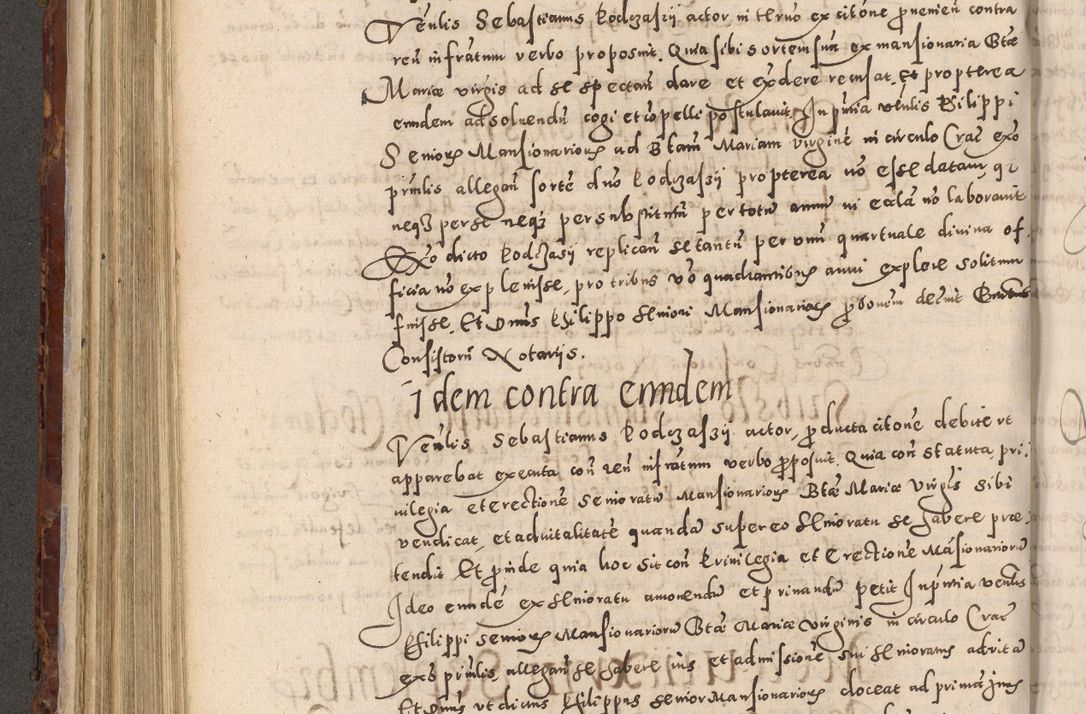 Venlis Sebastianus Kodczaszÿ actor, in termo ex citone proueniem contra
reum infratum verbo proposuit. Quia sibi sortem suam ex mansionaria Btæ
Mariæ virgis ad se spectam dare et exdere recusat. Et propterea
eundem ad soluendum cogi et copelli postulauit. In pntia venlis Philippi
Senioris Mansionariorum ad Btam Mariam virginem in circulo Crac exo
prinlis allegam sortem dno Kodzaszÿ propterea no esse datam, qr
neqz per se neqz per substitutum per totum annum in ecclā no laborauit
Exo dicto Kodczaszÿ replicam se tantum per vnum quartuale diuina of-
ficia no expleuisse, pro tribus vo quadrantibus anni explere solitum
fuisse. Et Dnus Philippo Seniori Mansionariorum probonem decreuit
Consistorii Notarijs.
Idem contra eundem
Venlis Sebastianus Kodczaszÿ actor, producta citone debite vt
apparebat executa con reum infratum verbo proposuit. Quia con statuta pri-
uilegia et erectione Senioratum Mansionariorum Btæ Mariæ virgis sibi
vendicat, et aduitalitate quandam super eo Senioratu se habere præ-
tendit Et proinde quia hoc sit con Priuilegia et Erectione Mansionariorum
Ideo eunde ex Senioratu amouendum et priuandum petit In pntia venlis
Philippi Senioris Mansionariorum Btæ Mariæ virginis in circulo Crac
exo prinlis, allegam se habere ius et admissione sui Senioratus ad vita
Et Dnus vt dictus Philippus Senior Mansionariorum doceat ad prima Juris